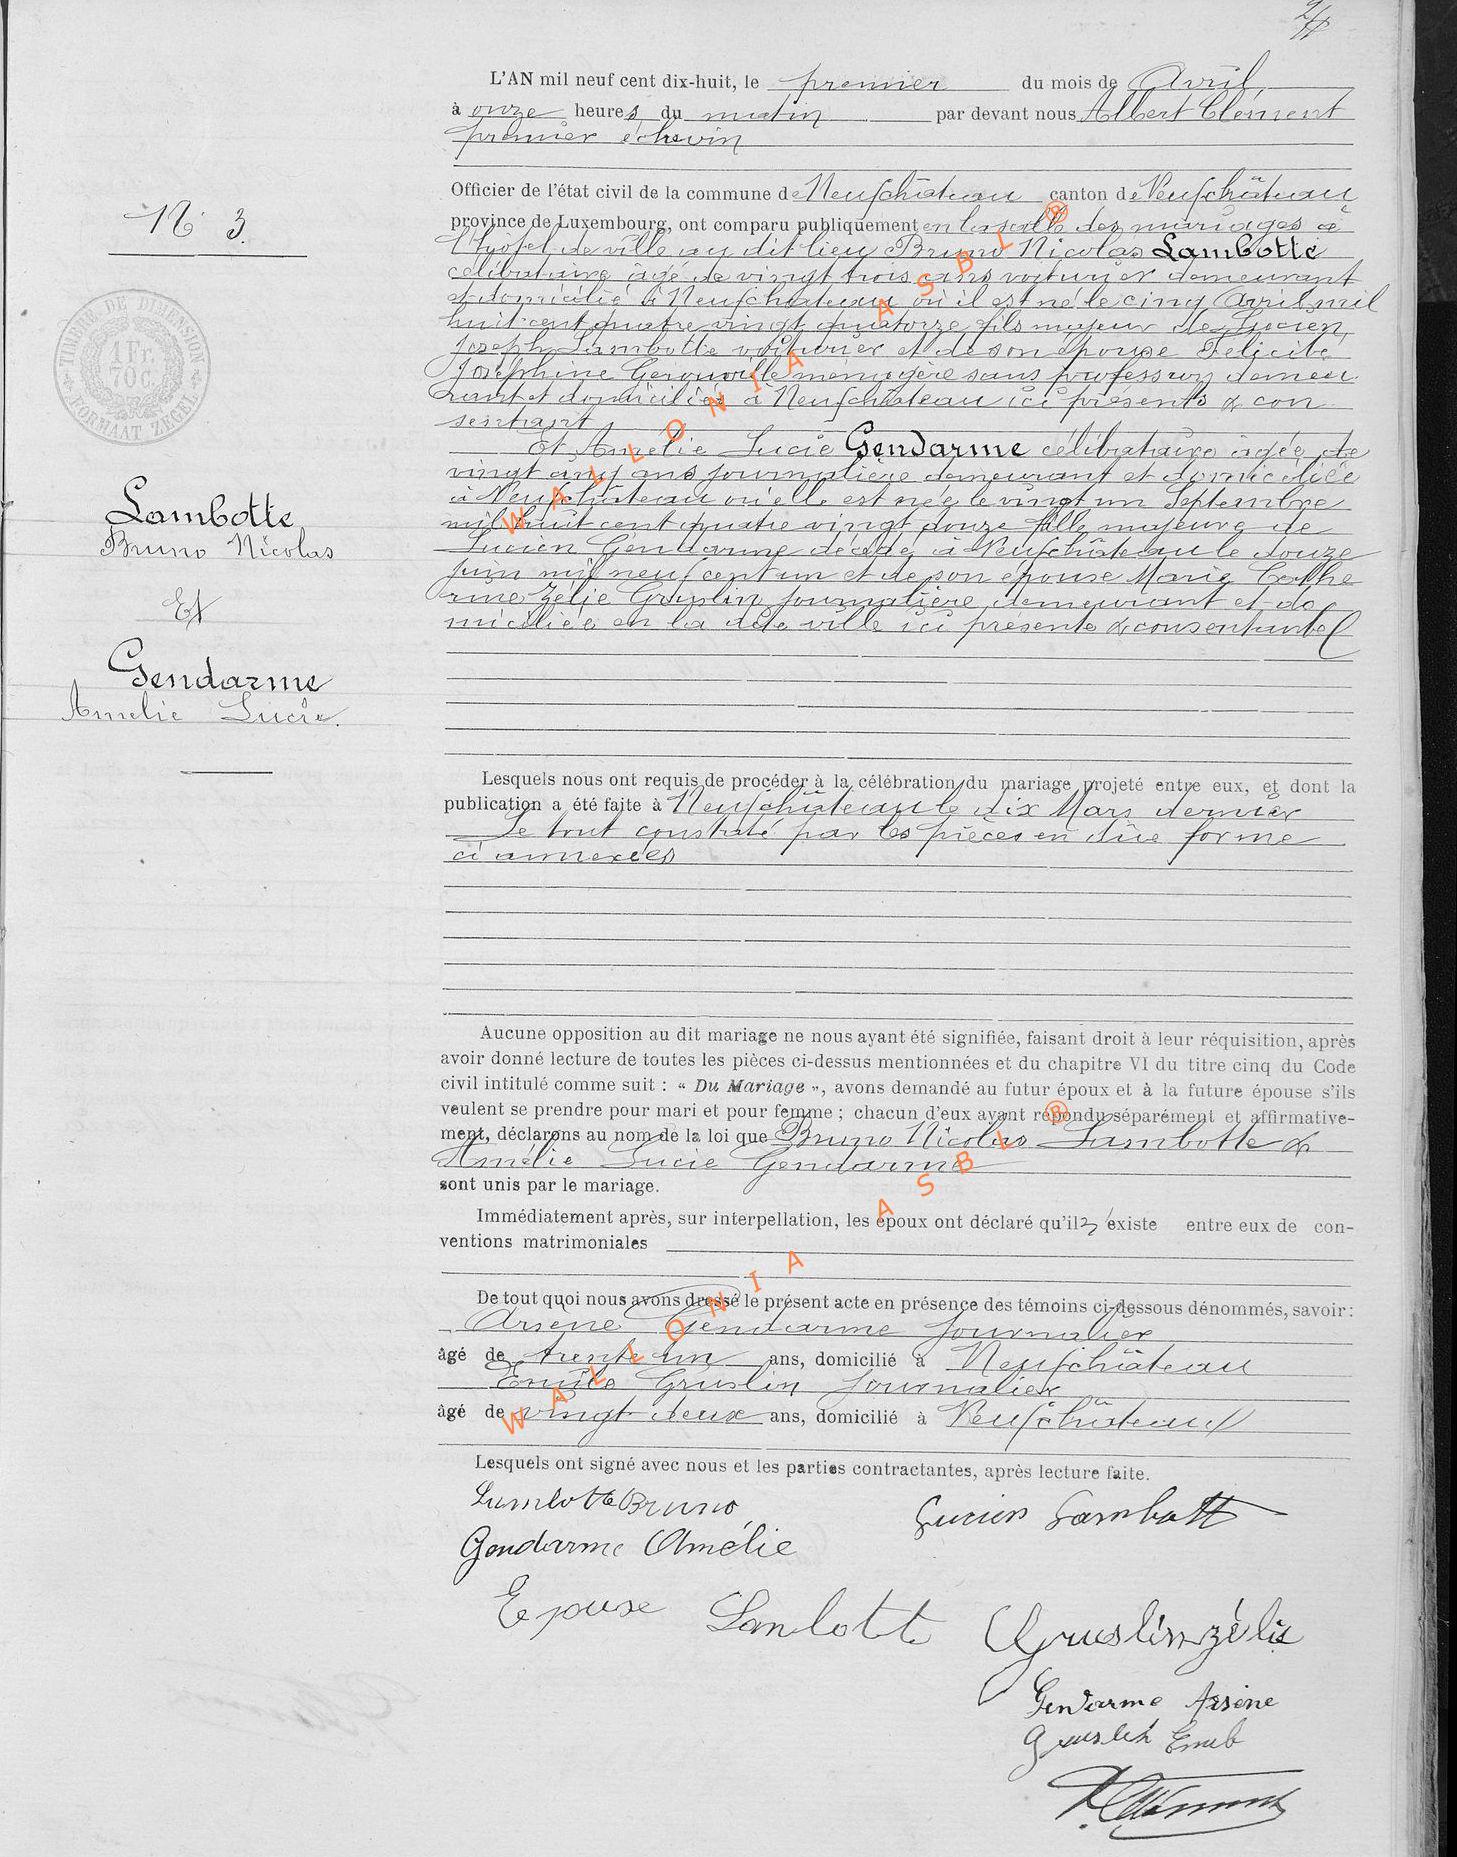 L'AN mil neuf cent dix-huit, le premier du mois de Avril
à onze heures du matin par devant nous Albert Clément
premier échevin
Officier de l'état civil de la commune de Neufchâteau canton de Neufchâteau
province de Luxembourg, ont comparu publiquement en la salle des mariages à
l'hotel de ville au dit lieu Bruno Nicolas Lambotte
célibataire âgé de vingt trois ans voiturier demeurant
et domicilié à Neufchateau où il est né le cinq Avril mil
huit cent quatre vingt quatorze fils majeur de Lucien
Joseph Lambotte voiturier et de son épouse Félicité
Joséphine Gerouville menagère sans profession demeu
rant et domiciliés à Neufchâteau ici présents & con
sentant
Et Amélie Lucie Gendarme célibataire agée de
vingt cinq ans journalière demeurant et domiciliée
à Neufchâteau où elle est née le vingt un Septembre
mil huit cent quatre vingt douze fille majeure de
Lucien Gendarme décédé à Neufchâteau le douze
juin mil neuf cent un et de son épouse Marie Cathe
rine Zélie Gruslin journalière demeurant et do
miciliée en la dite ville ici présente & consentante
N° 3.
TIMBRE DE DIMENSION
1 Fr.
70 C.
FORMAAT ZEGEL
Lambotte
Bruno Nicolas
Et
Gendarme
Amelie Lucie.
Lesquels nous ont requis de procéder à la célébration du mariage projeté entre eux, et dont la
publication a été faite à Neufchâteau le dix Mars dernier
Le tout constaté par les pièces en dûe forme
ci annexées
Aucune opposition au dit mariage ne nous ayant été signifiée, faisant droit à leur réquisition, après
avoir donné lecture de toutes les pièces ci-dessus mentionnées et du chapitre VI du titre cinq du Code
civil intitulé comme suit : « Du Mariage », avons demandé au futur époux et à la future épouse s'ils
veulent se prendre pour mari et pour femme ; chacun d'eux ayant répondu séparément et affirmative-
ment, déclarons au nom de la loi que Bruno Nicolas Lambotte &
Amélie Lucie Gendarme
sont unis par le mariage.
Immédiatement après, sur interpellation, les époux ont déclaré qu'il n'existe entre eux de con-
ventions matrimoniales
De tout quoi nous avons dressé le présent acte en présence des témoins ci-dessous dénommés, savoir :
Arsène Gendarme journalier
âgé de trente un ans, domicilié à Neufchâteau
Emile Gruslin journalier
âgé de vingt deux ans, domicilié à Neufchâteau
Lesquels ont signé avec nous et les parties contractantes, après lecture faite.
Lambotte Bruno
Lucien Lambott
Gendarme Amélie
Epouse Lanbott
Gruslin zélie
Gendarme Arsène
Gruslin Emile
WALLONIA ASBL ®
WALLONIA ASBL ®